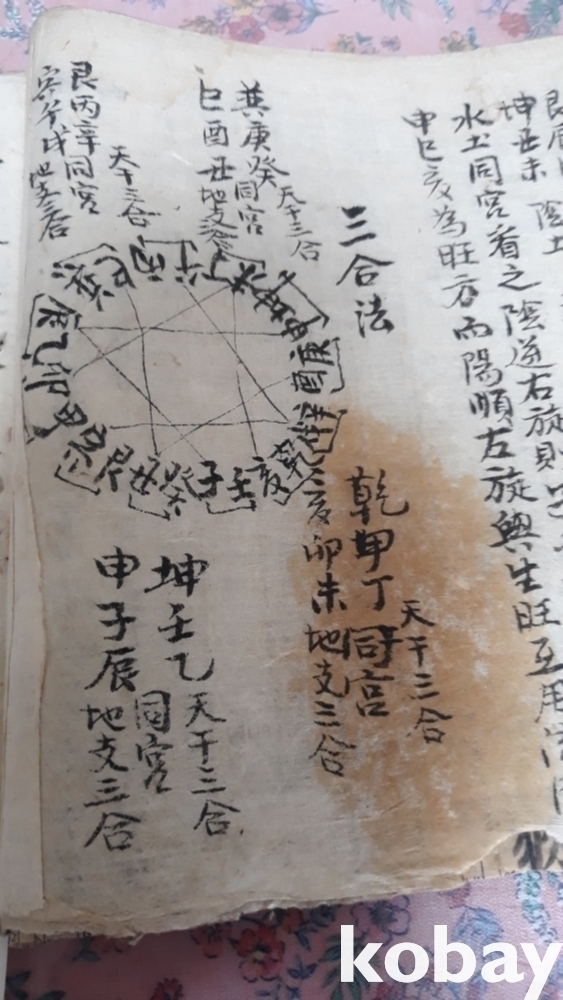 坤丑未
水土同宮看之陰逆右旋則
申巳亥為旺方而陽順左旋與生旺互用
三合法
巽庚癸同宮 天干三合
巳酉丑地支三合
艮丙辛同宮 天干三合
寅午戌地支三合
丙午丁未坤申庚酉辛戌乾亥壬子癸丑艮寅甲卯乙辰巽巳
乾甲丁同宮 天干三合
亥卯未地支三合
坤壬乙同宮 天干三合
申子辰地支三合
kobay